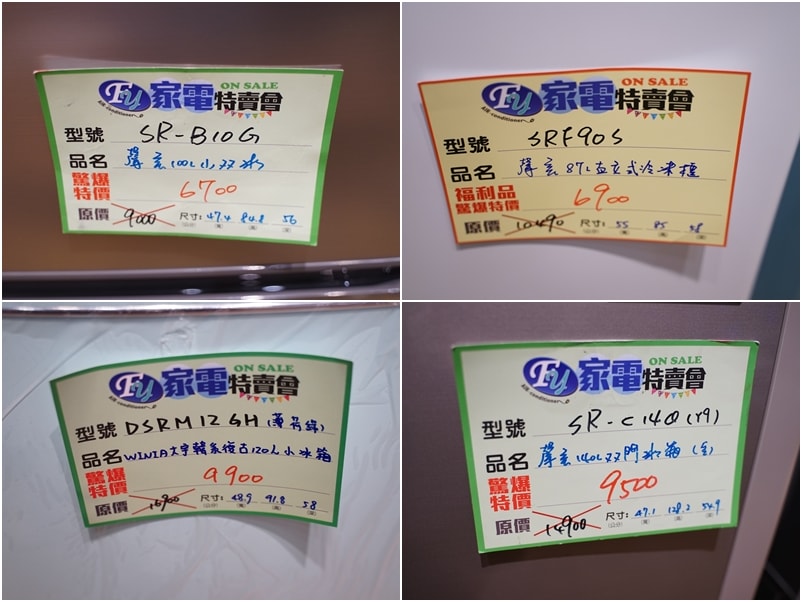 FU 家電特賣會 ON SALE
型號 SR-B10G
品名 聲寶100L小双冰
驚爆特價 6700
原價 9000 尺寸: 47.4 84.8 56
FU 家電特賣會 ON SALE
型號 SRF90S
品名 聲寶87L直立式冷凍櫃
福利品
驚爆特價 6900
原價 10490 尺寸: 55 85 58
FU 家電特賣會 ON SALE
型號 DSRM12GH (薄荷綠)
品名 WINIA大宇韓系復古120L小冰箱
驚爆特價 9900
原價 16900 尺寸: 48.9 91.8 58
FU 家電特賣會 ON SALE
型號 SR-C14Q(Y9)
品名 聲寶140L双門冰箱(金)
驚爆特價 9500
原價 14900 尺寸: 47.1 128.2 54.9